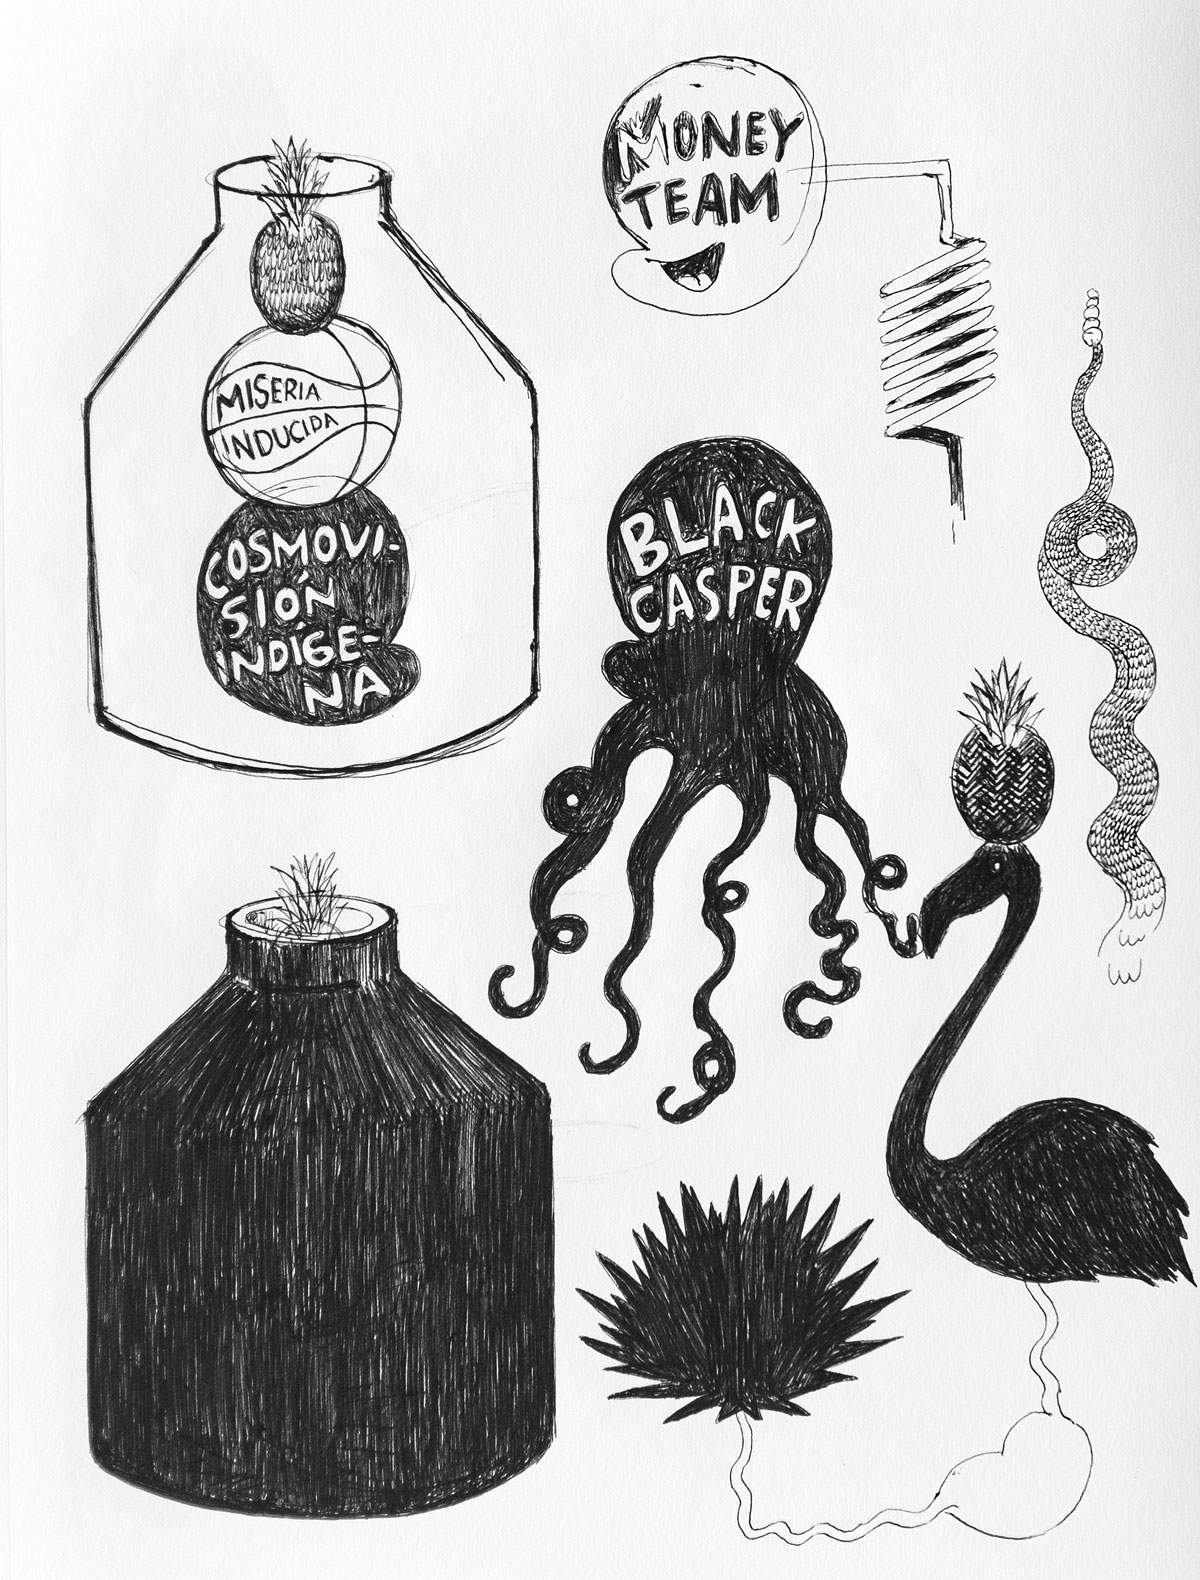 MONEY
TEAM
MISERIA
INDUCIDA
COSMOVI-
SIÓN
INDÍGE-
NA
BLACK
CASPER